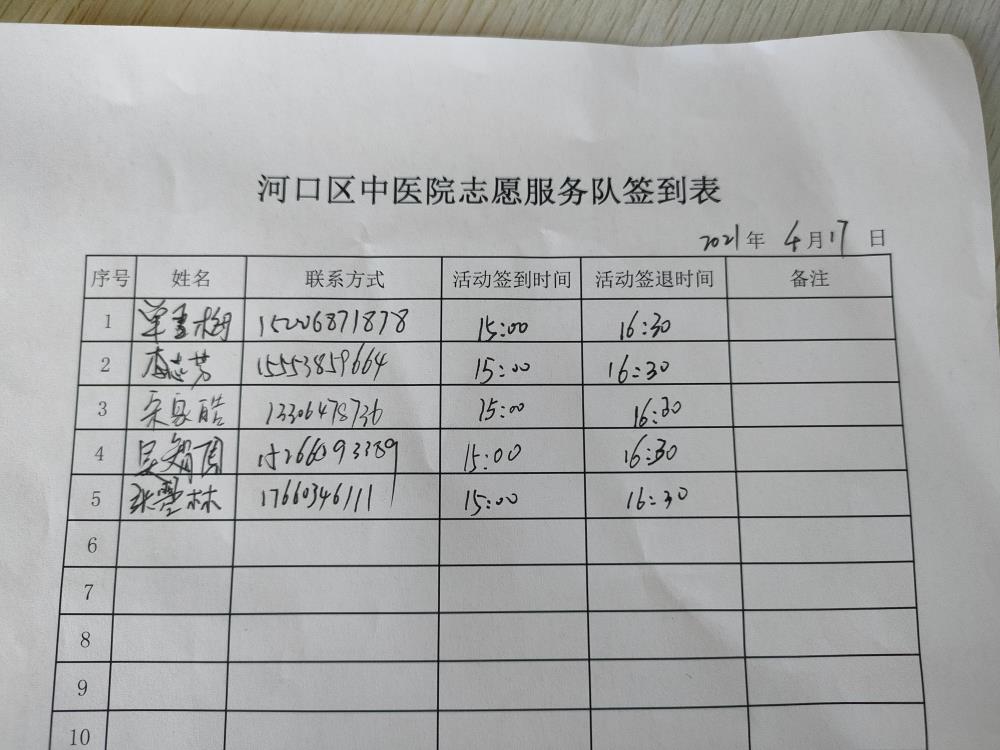 河口区中医院志愿服务队签到表
2021年 4月17日
序号 姓名 联系方式 活动签到时间 活动签退时间 备注
1 15206871878 15:00 16:30
2 李志芳 15553859664 15:00 16:30
3 宋家皓 13306478736 15:00 16:30
4 15266093389 15:00 16:30
5 17660346111 15:00 16:30
6
7
8
9
10